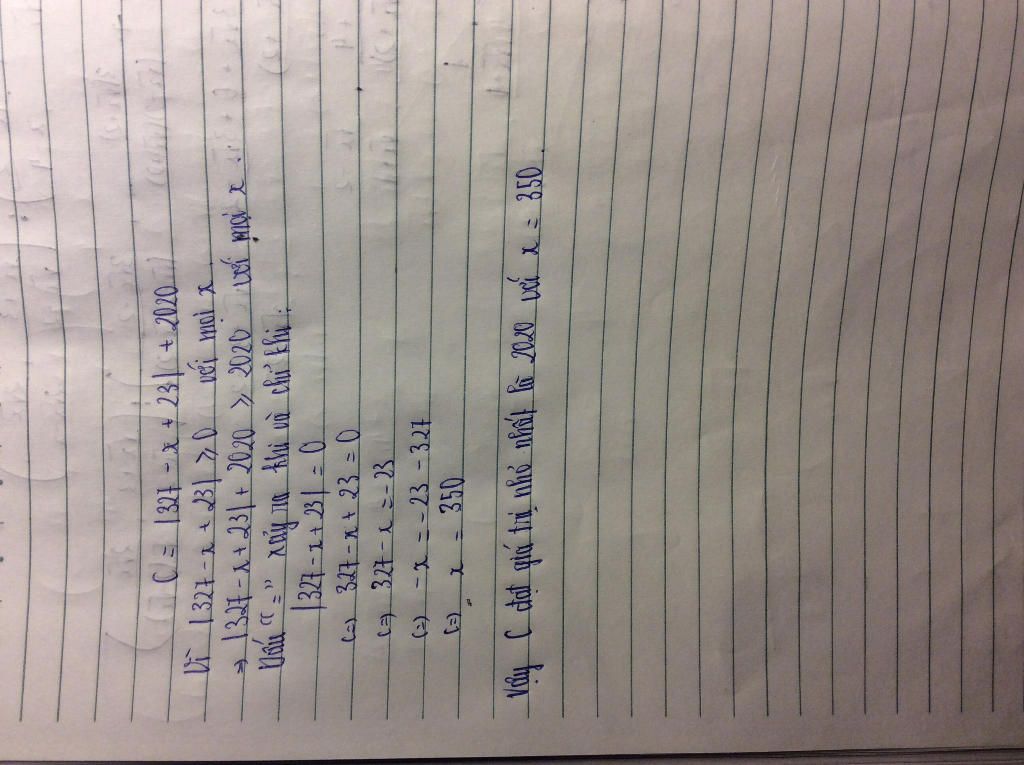 C = |327 - x + 23| + 2020
Vì |327 - x + 23| ≥ 0 với mọi x
⇒ |327 - x + 23| + 2020 ≥ 2020 với mọi x
Dấu "=" xảy ra khi và chỉ khi:
|327 - x + 23| = 0
(=) 327 - x + 23 = 0
(=) 327 - x = -23
(=) -x = -23 - 327
(=) x = 350
Vậy C đạt giá trị nhỏ nhất là 2020 với x = 350